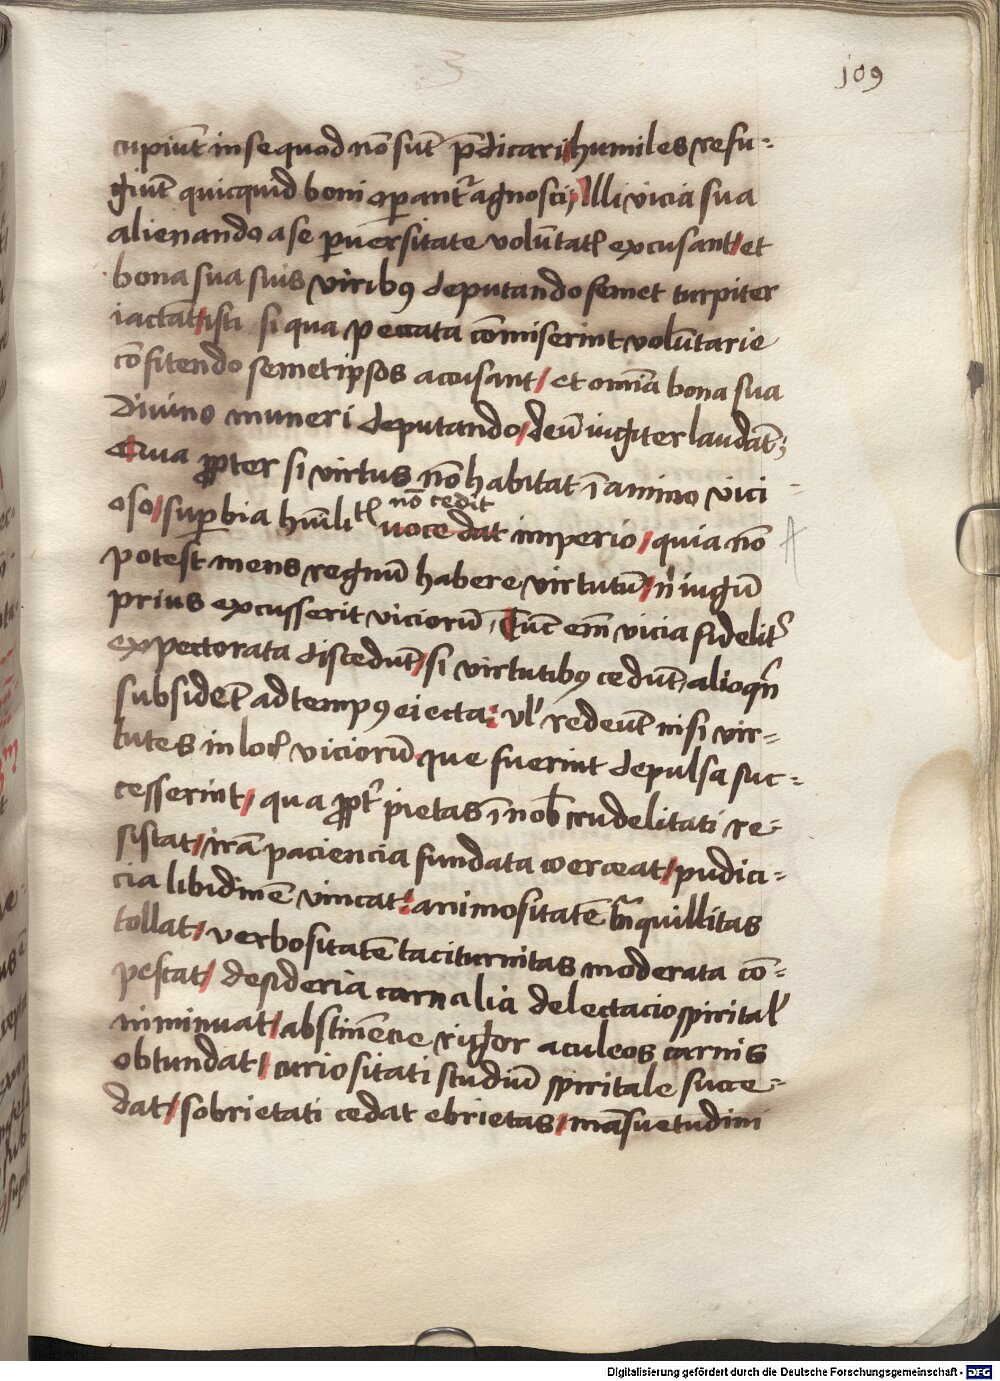 109
cupiūt in se quod nō sūt p̄dicari / humiles refu=
giūt quicquid boni oꝑant᷑ agnosci; Illi vicia sua
alienando a se ꝑuersitate volūtatꝭ excusant / et
bona sua suis viribꝰ deputando semet turpiter
iactāt / isti si qua peccata cōmiserint volūtarie
cōfitendo semetipsos accusant / et om̄ia bona sua
diuino muneri deputando / deū iugiter laudāt;
Qua ꝓpter si virtus nō habitat ī animo vici=
oso / suꝑbia hūilitꝭ
nō cedit
voce dat imperio / quia nō
potest mens regnū habere virtutū / n̄ iugū
prius excusserit viciorū, Tūc em̄ vicia fidelit᷑
expectorata discedūt / si virtutibꝰ cedūt, alioqn̄
subsidēt ad tempꝰ eiecta: vl̓ redeūt nisi vir=
tutes in locꝭ viciorū que fuerint depulsa suc=
cesserint / qua ꝓpt᷑ pietas ī nob̄ crudelitati re=
sistat / irā paciencia fundata coerceat / pudici=
cia libidinē vincat: animositatē t̄nquillitas
tollat / verbositatē taciturnitas moderata cō=
pescat / desideria carnalia delectacio spirital̓
inminuat / abstinēcie rigor aculeos carnis
obtundat / curiositati studiū spiritale succe=
dat / sobrietati cedat ebrietas / māsuetudini
Digitalisierung gefördert durch die Deutsche Forschungsgemeinschaft - DFG